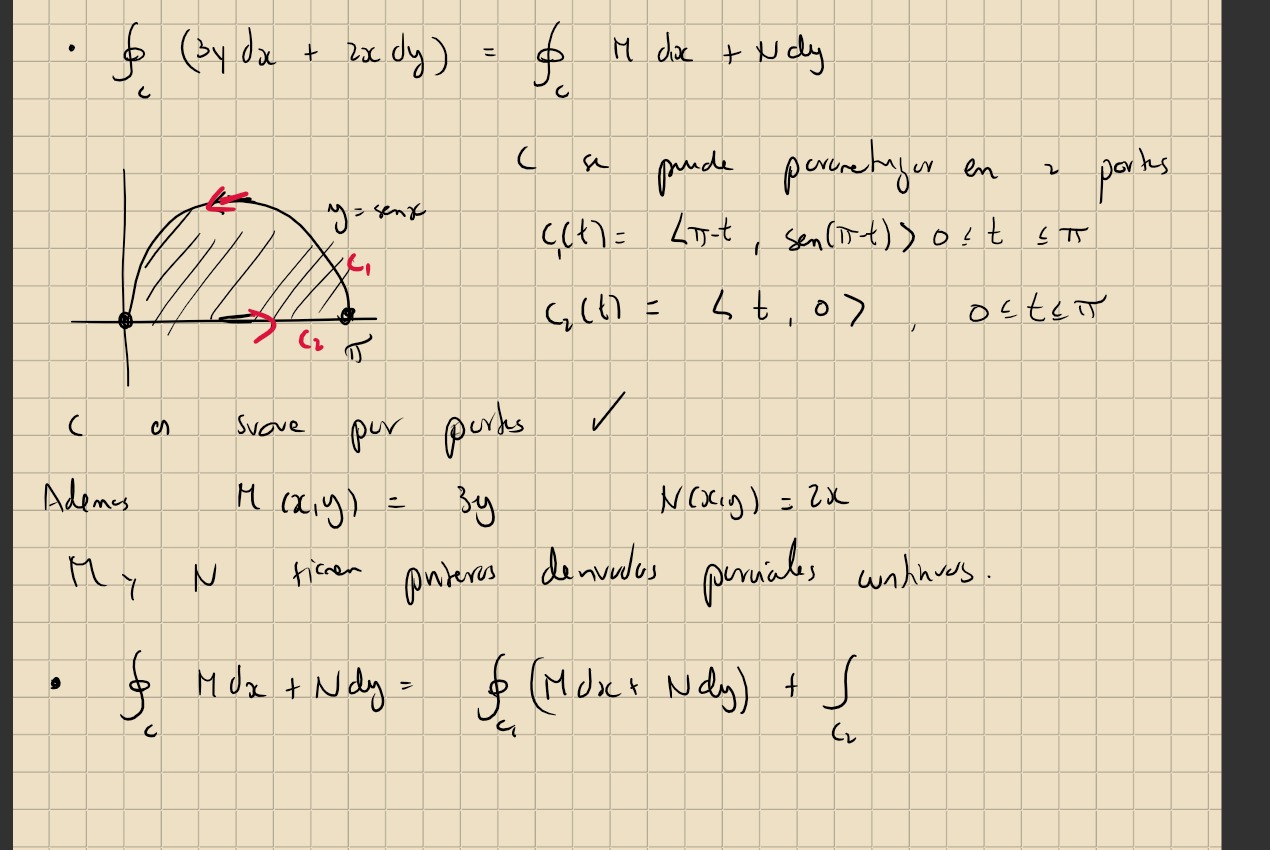 • ∮_C (3y dx + 2x dy) = ∮_C M dx + N dy
C se puede parametrizar en 2 partes
y = sen x
C₁(t) = <π-t, sen(π-t)> 0 ≤ t ≤ π
C₁
C₂(t) = <t, 0>, 0 ≤ t ≤ π
C₂
π
C es suave por partes ✓
Ademas M(x,y) = 3y N(x,y) = 2x
M y N tienen primeras derivadas parciales continuas.
• ∮_C M dx + N dy = ∮_C₁ (M dx + N dy) + ∫_C₂